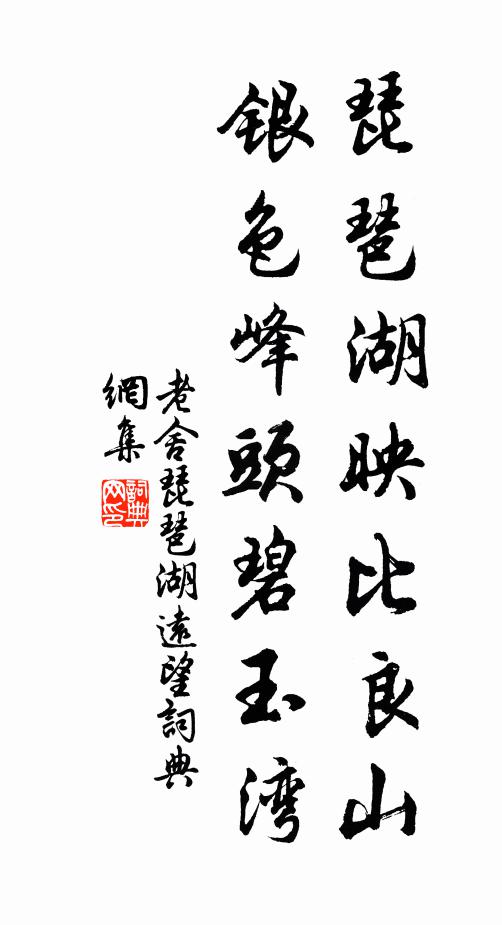 琵琶湖映比良山
銀色峰頭碧玉湾
老舍琵琶湖遠望詞典
網集
詞典
网印